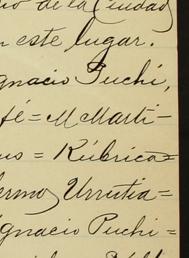 io de la Ciudad
n este lugar.
gnacio Puchi,
fé = M Marti-
us = Rúbrica =
ermo Urrutia =
Ignacio Puchi =